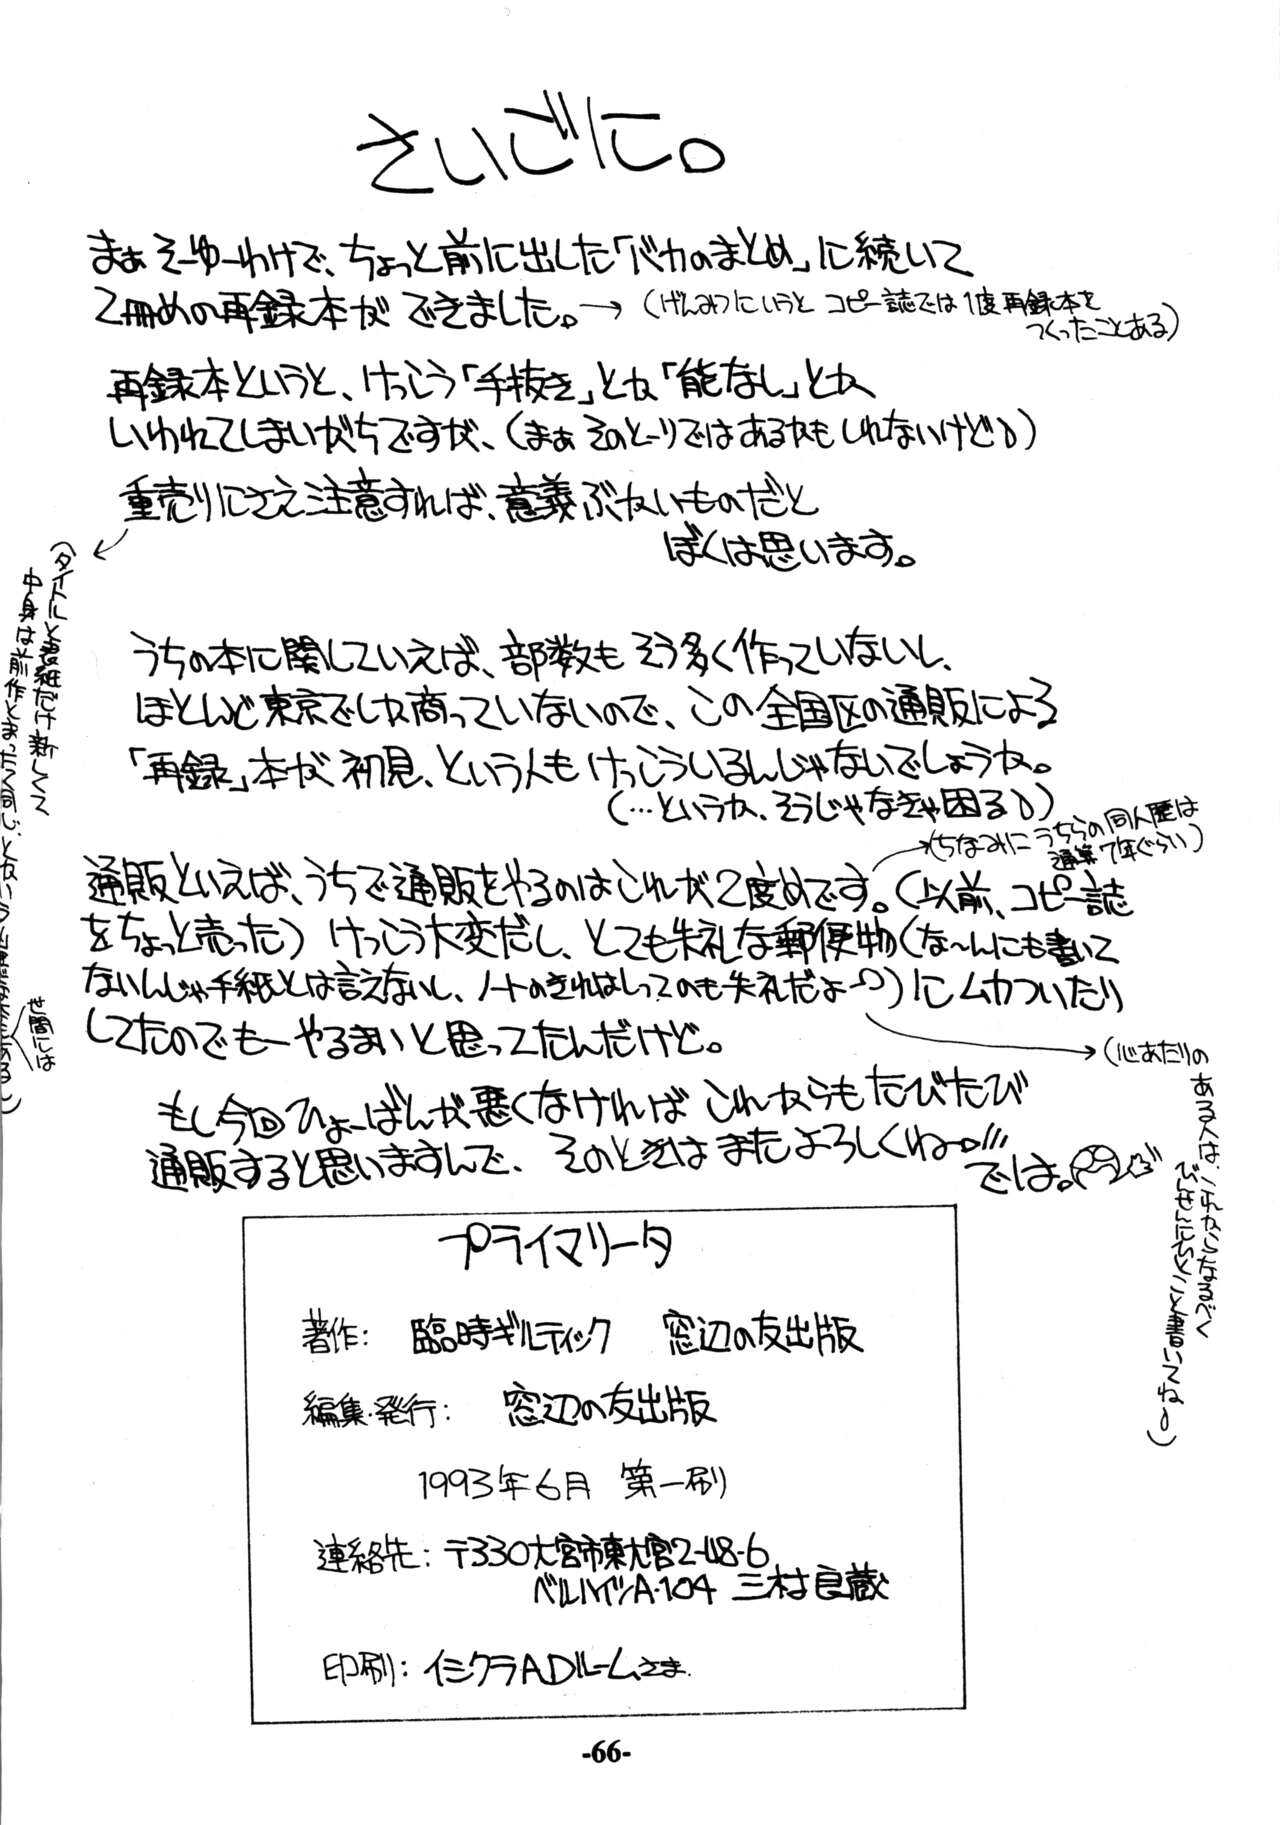 さいごに。
まぁそーゆーわけで、ちょっと前に出した「バカのまとめ」に続いて
2冊めの再録本ができました。→(げんみつにいうと コピー誌では1度再録本を
つくったことある)
再録本というと、けっこう「手抜き」とか「能なし」とか
いわれてしまいがちですが、(まぁ そのとーりではあるかもしれないけど)
重売りにさえ注意すれば、意義ぶかいものだと
ぼくは思います。
(タイトルと表紙だけ新しくて
中身は前作とまったく同じ、とかいう
世間には
うちの本に関していえば、部数もそう多く作っていないし、
ほとんど東京でしか商っていないので、この全国区の通販による
「再録」本が初見、という人もけっこういるんじゃないでしょうか。
(…というか、そうじゃなきゃ困る)
(ちなみにうちらの同人歴は
通算7年ぐらい)
通販といえば、うちで通販をやるのはこれが2度めです。(以前、コピー誌
をちょっと売った)けっこう大変だし、とても失礼な郵便物(な〜んにも書いて
ないんじゃ手紙とは言えないし、ノートのきれはしってのも失礼だよー)にムカついたり
してたのでもーやるまいと思ってたんだけど。
(心あたりの
ある人は、これからなるべく
びんせんにひとこと書いてね)
もし今回ひょーばんが悪くなければ これからもたびたび
通販すると思いますんで、そのときはまたよろしくねー
では。
プライマリータ
著作: 臨時ギルティック 窓辺の友出版
編集・発行: 窓辺の友出版
1993年6月 第一刷
連絡先: 〒330大宮市東大宮2-48-6
ベルハイツA・104 三村良蔵
印刷: イシクラADルームさま
-66-